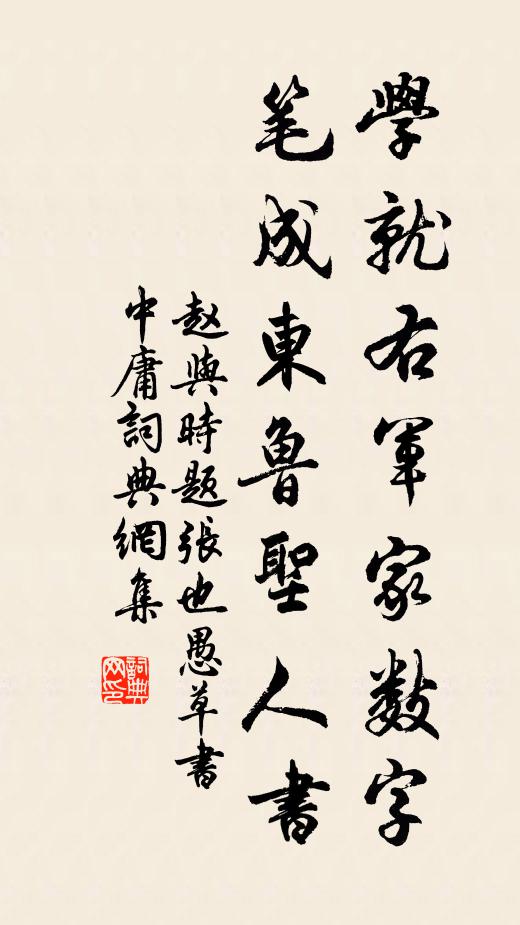 學就右軍家数字
笔成東魯聖人書
赵與時题張也愚草書
中庸詞典網集
詞典网印